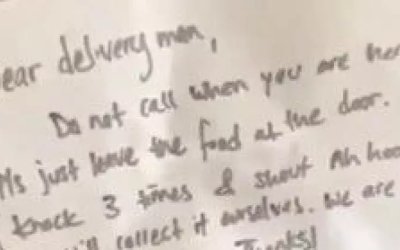 ear delivery man,
Do not call when you are her
Pls just leave the food at the door.
knock 3 times & shout Ah hoo
ill collect it ourselves. We are
Thanks!